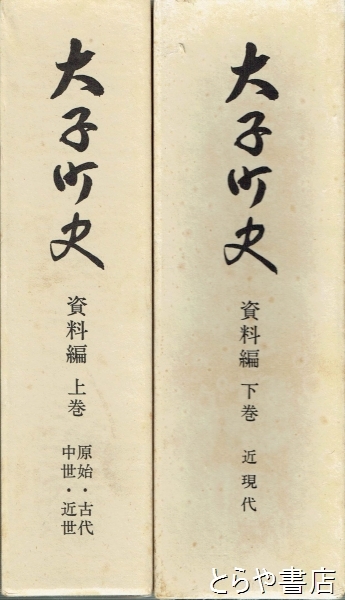 大子町史
資料編 上巻
原始・古代
中世・近世
大子町史
資料編 下巻 近現代
とらや書店